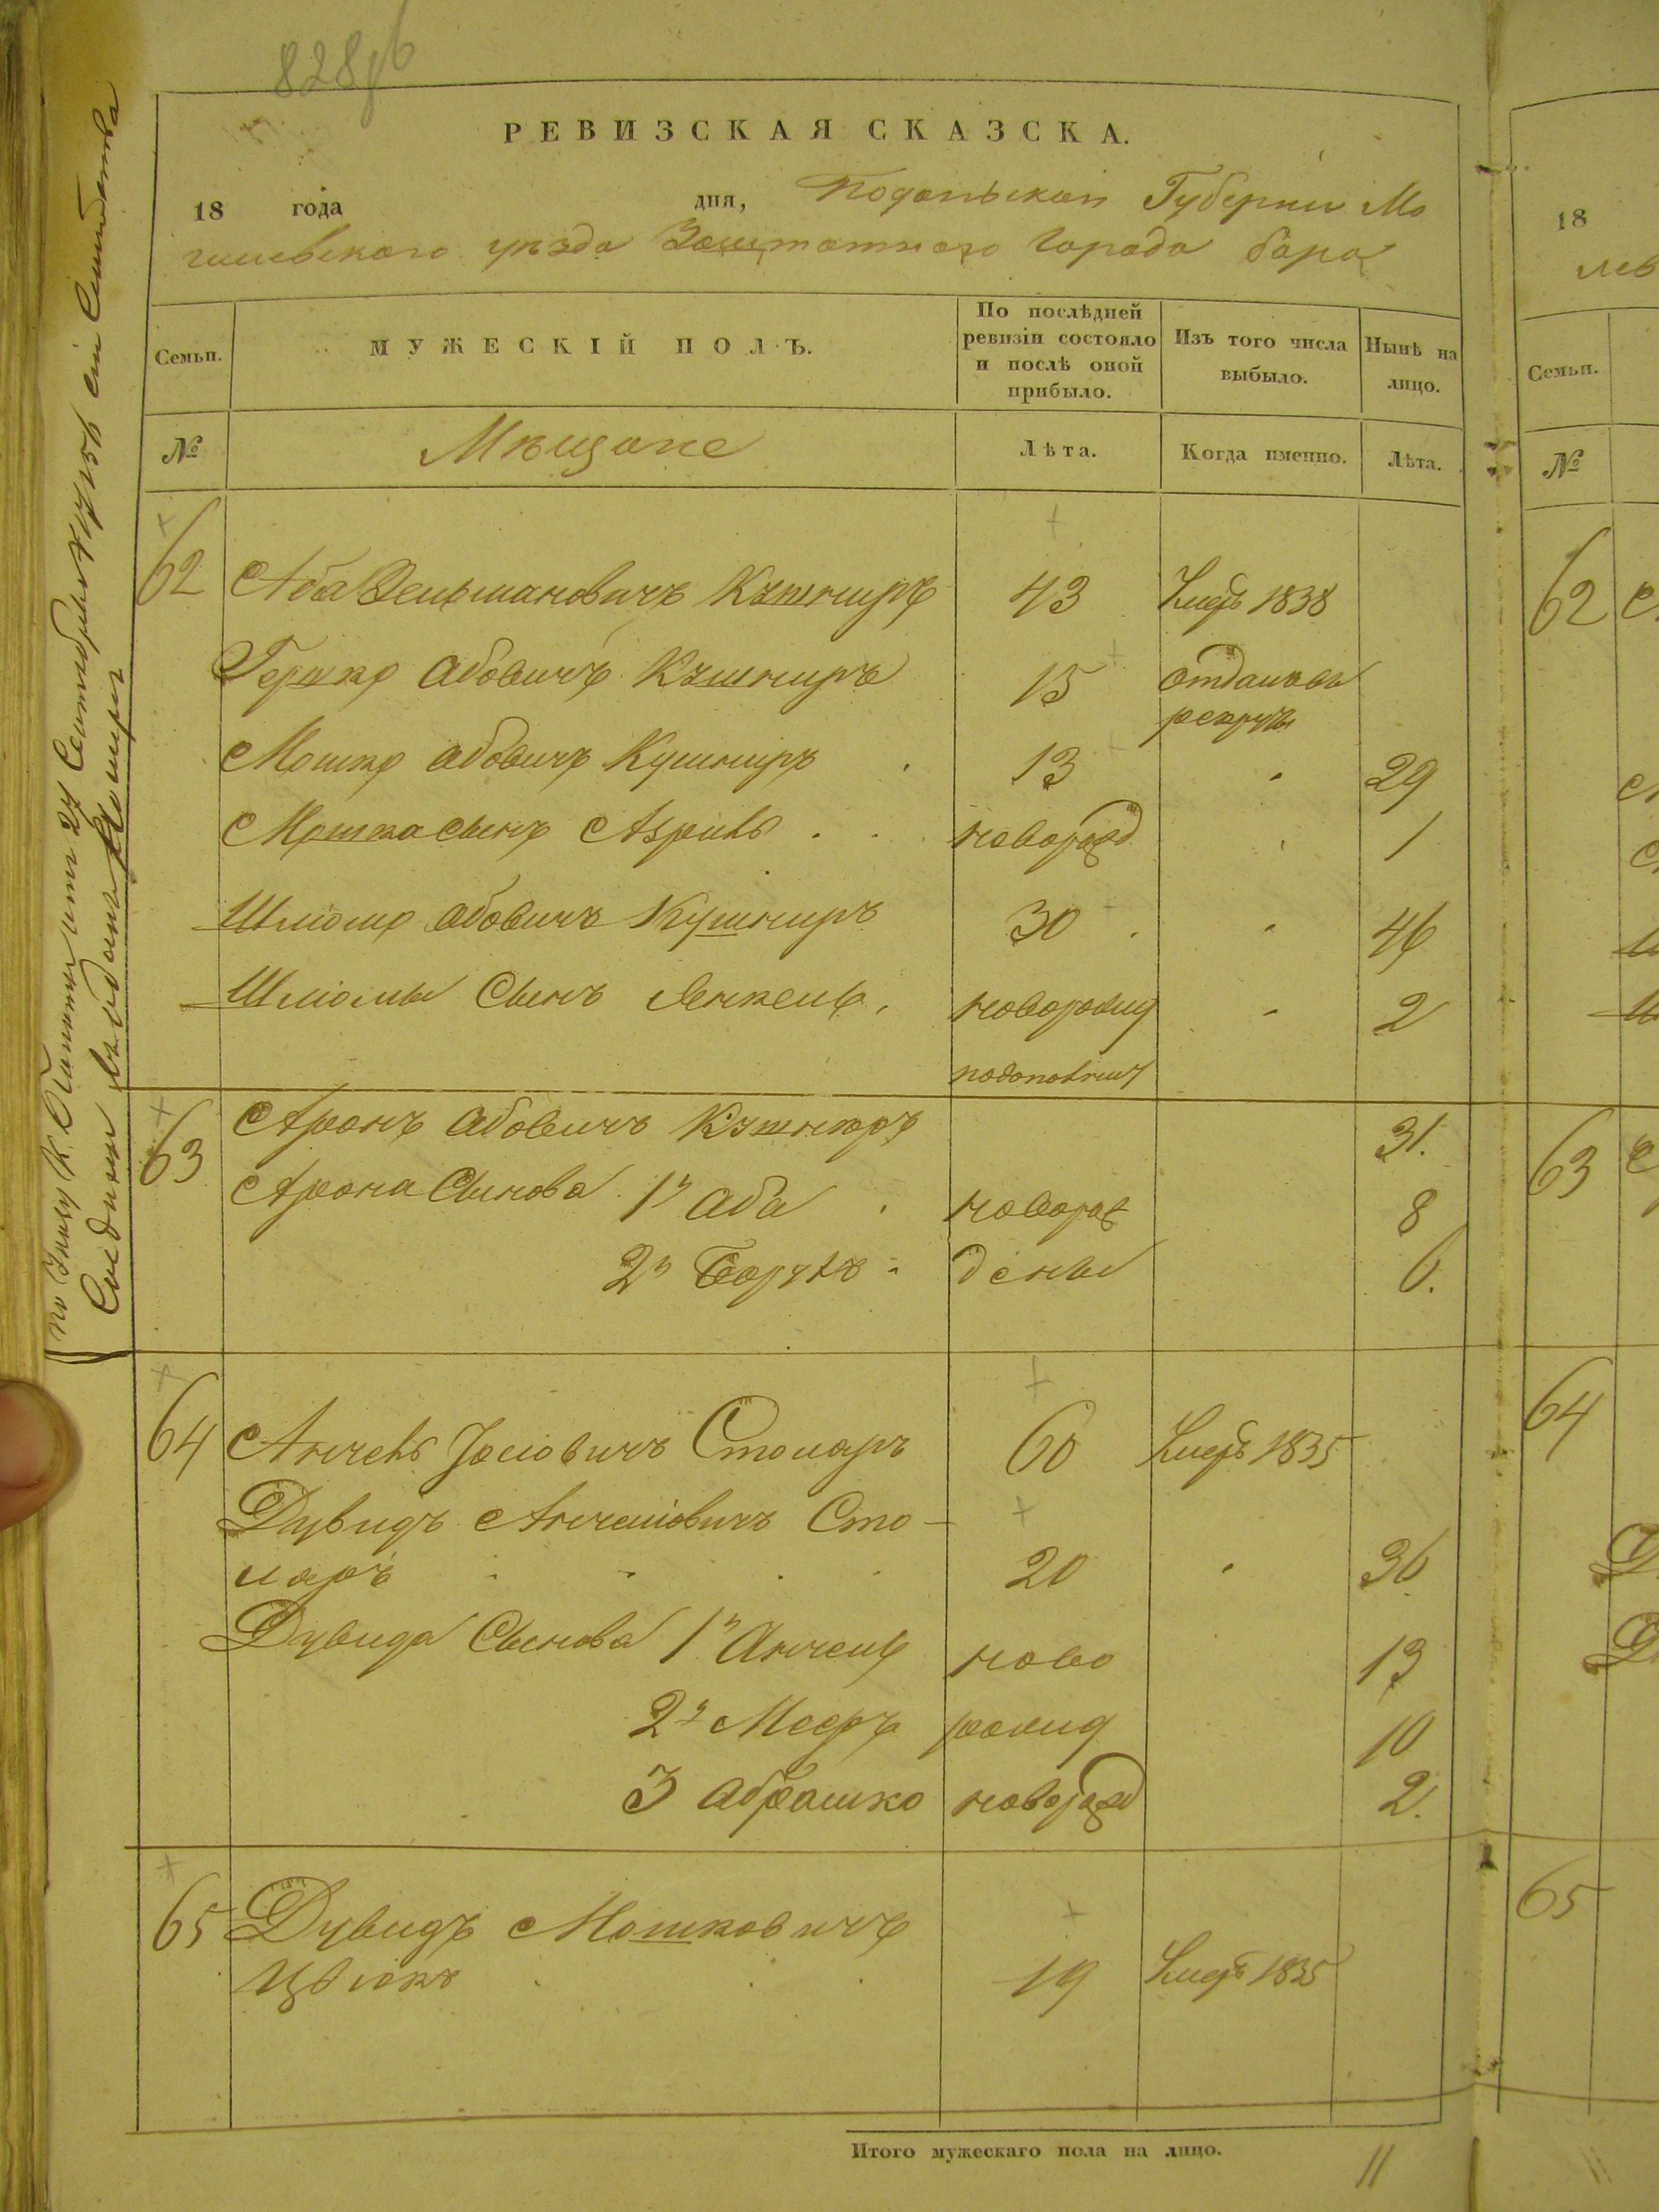 828об
РЕВИЗСКАЯ СКАЗСКА.
18 года дня, Подольской Губернии Мо
гилевского уѣзда Заштатного Города бара
Семьи. МУЖЕСКІЙ ПОЛЪ. По послѣдней ревизіи состояло и послѣ оной прибыло. Изъ того числа выбыло. Нынѣ на лицо.
№ Мѣщане Лѣта. Когда именно. Лѣта.
62 Аба Зельмановичъ Кушниръ 43 Умеръ 1838
Гершко Абовичъ Кушниръ 15 отданъ въ
рекруты
Мошко Абовичъ Кушниръ 13 29
Мошка сынъ Азріль новорожд 1
Шліома Абовичъ Кушниръ 30 46
Шліомы Сынъ Янкель новорожд 2
63 Аронъ Абовичъ Кушниръ 31.
Арона Сынова 1й Аба новорож 8
2й Борухъ дены 6.
64 Анчель Іосіовичъ Столяръ 60 Умеръ 1835
Дувидъ Анчеліовичъ Сто-
ляръ 20 36
Дувида Сынова 1й Анчель ново 13
2й Мееръ рожд 10
3 Абрашко новорожд 2.
65 Дувидъ Мошковичъ
Цвіокъ 19 Умеръ 1835
Итого мужескаго пола на лицо. 11
18
лев
Семьи.
№
62
63
64
65